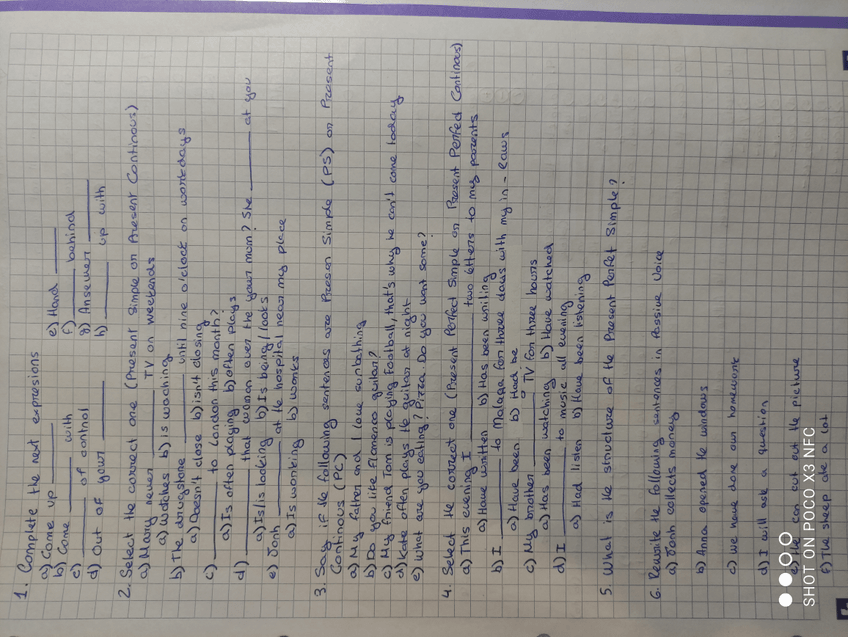 1. Complete the next expresions
a) Come up ______ e) Hand ______
b) Come ______ with f) ______ behind
c) ______ of control g) Answer ______
d) Out of your ______ h) ______ up with
2. Select the correct one (Present Simple or Present Continous)
a) Mary never ______ TV on weekends
a) Watches b) is watching
b) The drugstore ______ until nine o'clock on workdays
a) Doesn't close b) isn't closing
c) ______ to London this month?
a) Is often playing b) often plays
d) ______ that woman over the your mom? She ______ at you
a) Is/is looking b) Is being/looks
e) Jonh ______ at the hospital near my place
a) Is working b) works
3. Say if the following sentences are Presen Simple (PS) or Present
Continous (PC)
a) My father and I love sunbathing
b) Do you like flamenco guitar?
c) My friend Tom is playing football, that's why he can't come today
d) Kate often plays the guitar at night
e) What are you eating? Pizza. Do you want some?
4. Select the correct one (Present Perfect Simple or Present Perfect Continous)
a) This evening I ______ two letters to my parents
a) Have written b) Has been writing
b) I ______ to Malaga for three days with my in-laws
a) Have been b) Had be
c) My brother ______ TV for three hours
a) Has been watching b) Have watched
d) I ______ to music all evening
a) Had listen b) Have been listening
5. What is the structure of the Present Perfet Simple?
6. Rewrite the following sentences in Passive Voice
a) Jonh collects money
b) Anna opened the windows
c) We have done our homework
d) I will ask a question
e) He can cut out the picture
f) The sheep ate a lot
SHOT ON POCO X3 NFC